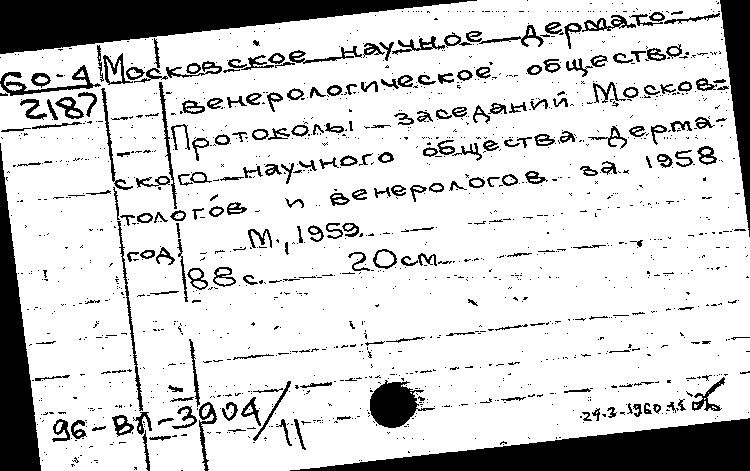 60-4 Московское научное дермато-
2187 венерологическое общество.
Протоколы заседаний Москов-
ского научного общества дерма-
тологов и венерологов за 1958
год. М., 1959.
88 с. 20 см.
96-ВЛ-3904/11
24.3.1960